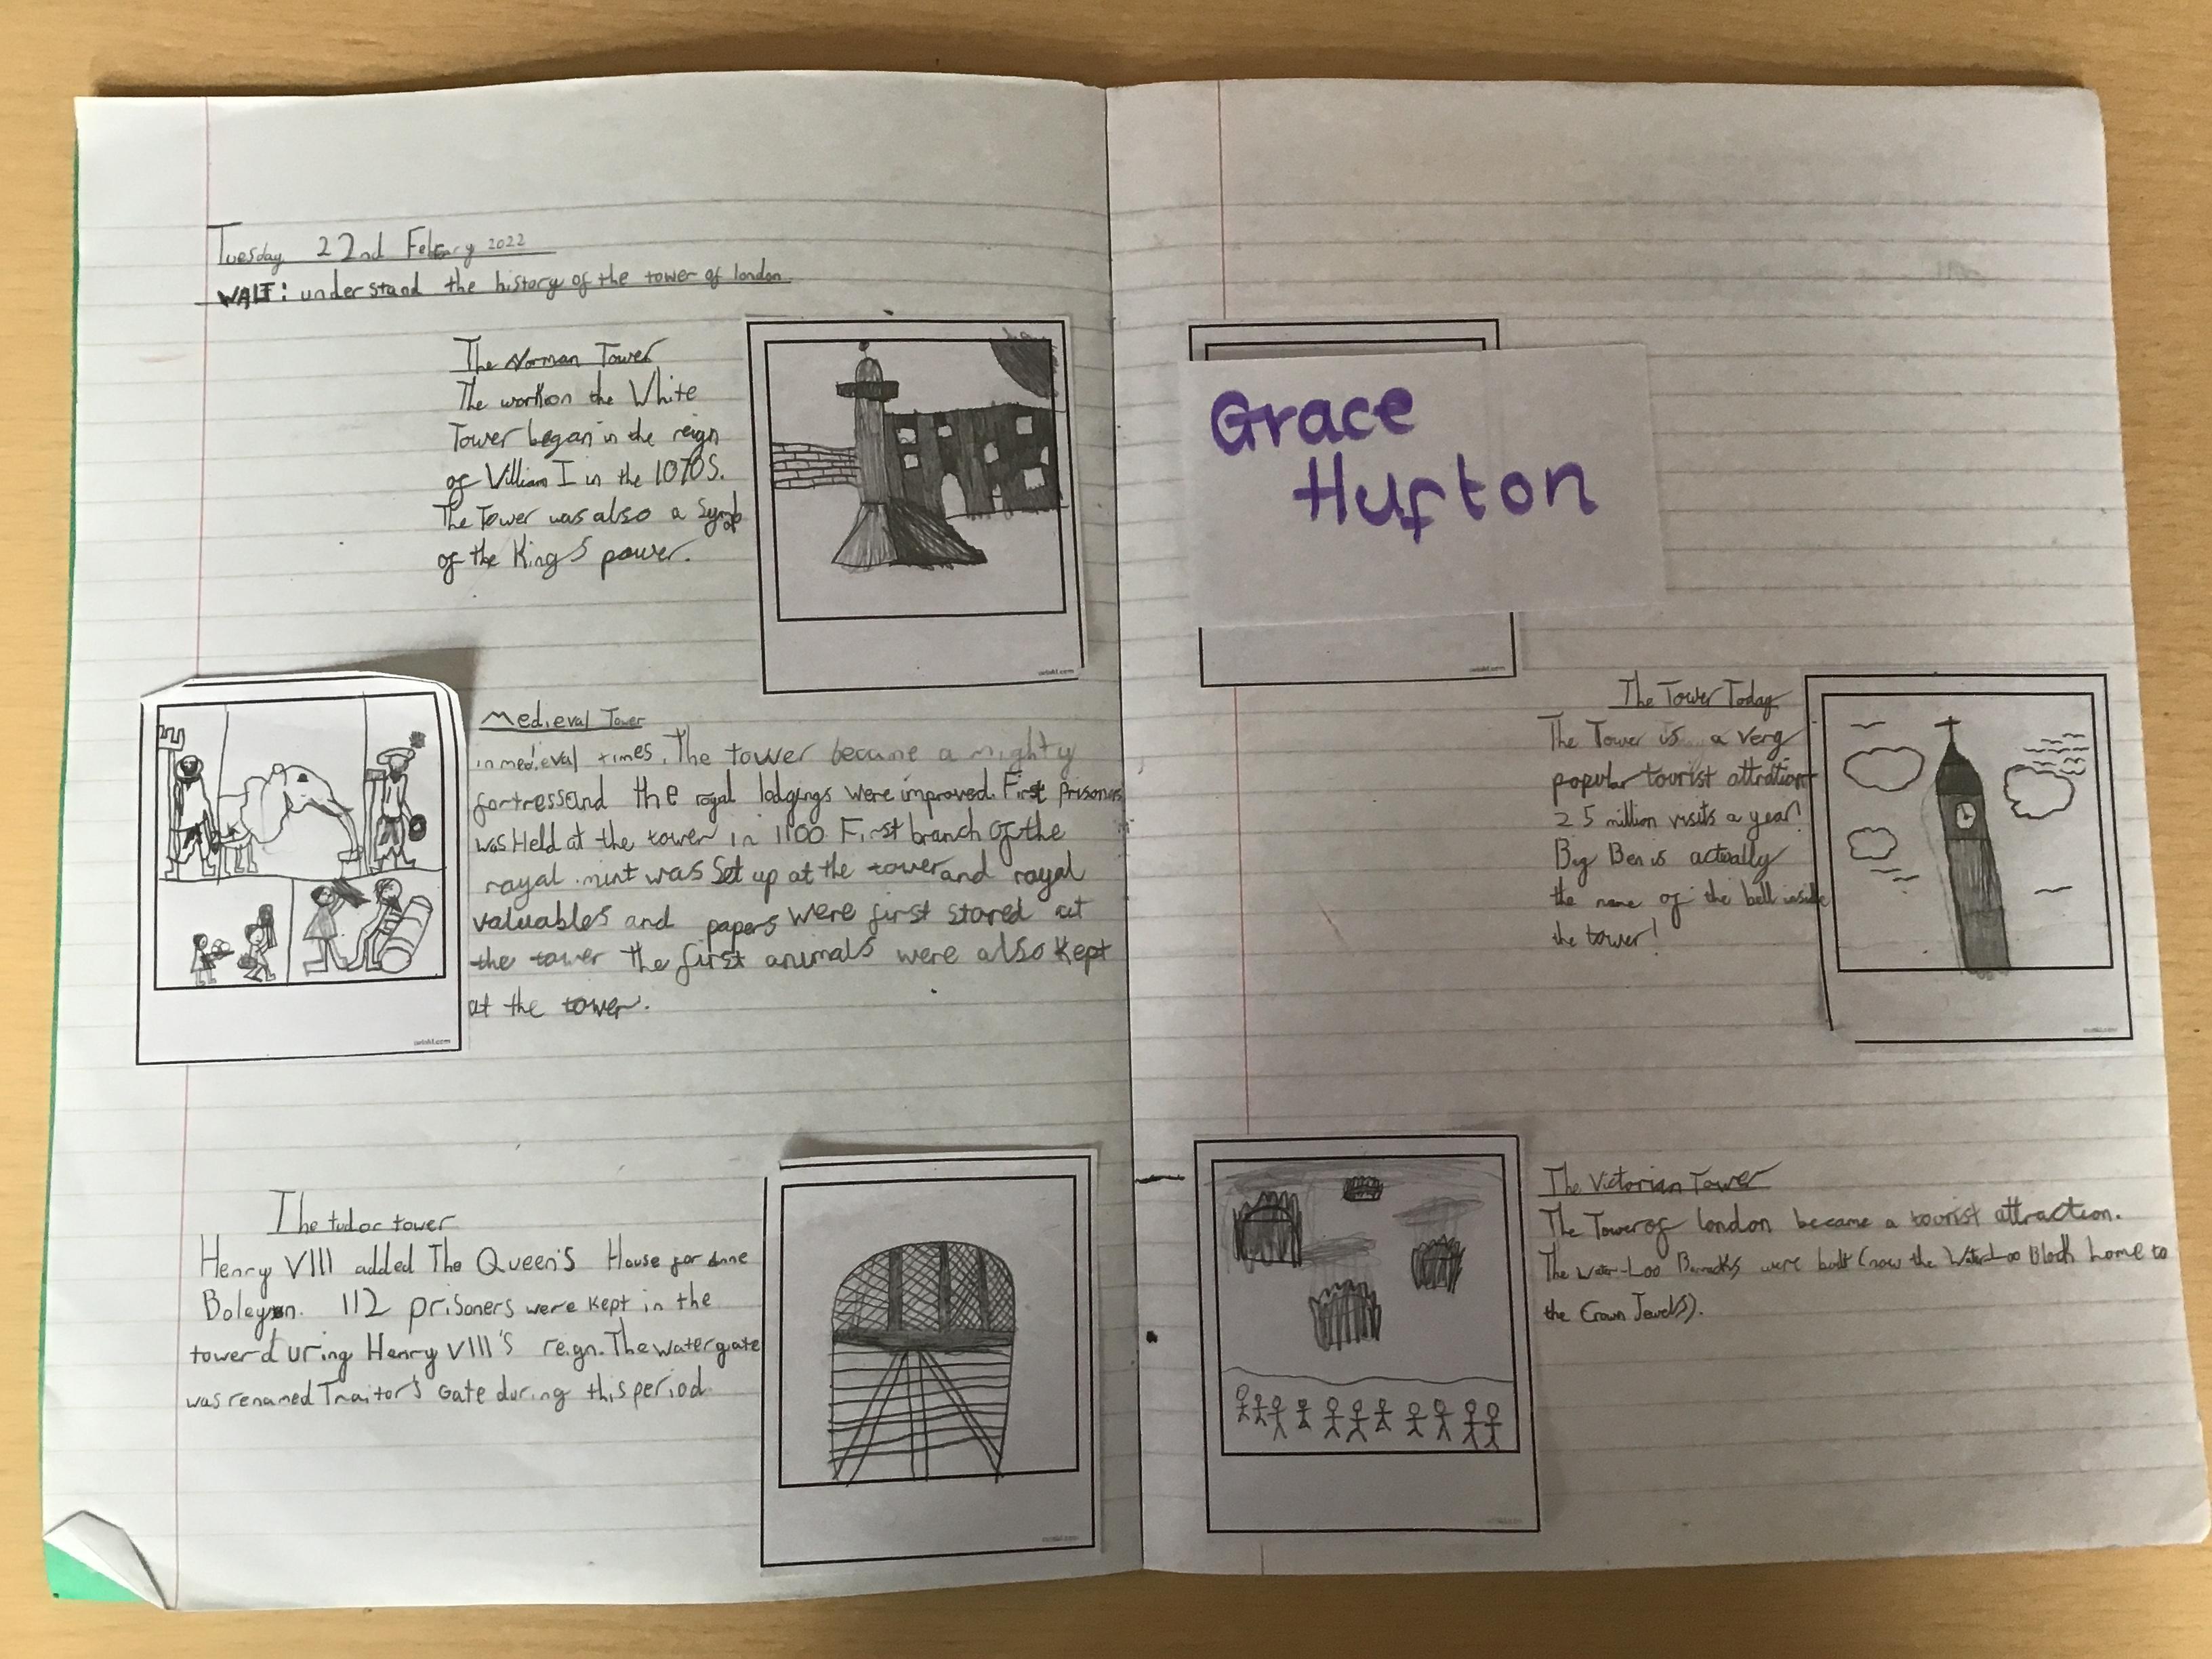 Tuesday 22nd February 2022
WALT: understand the history of the tower of london.
The Norman Tower
The work on the White
Tower began in the reign
of William I in the 1070s.
The Tower was also a Symbol
of the King's power.
Medieval Tower
in medieval times. The tower became a mighty
fortress and the royal lodgings were improved. First Prisoners
was Held at the tower in 1100 First branch of the
royal mint was Set up at the tower and royal
valuables and papers were first stored at
the tower the first animals were also kept
at the tower.
The tudor tower
Henry VIII added The Queen's House for Anne
Boleyn. 112 prisoners were kept in the
tower during Henry VIII's reign. The water gate
was renamed Traitor's Gate during this period
Grace
Hufton
The Tower Today
The Tower is a very
popular tourist attration
25 million visits a year!
Big Ben is actually
the name of the bell inside
the tower!
The Victorian Tower
The Tower of london became a tourist attraction.
The Water-Loo Barracks were built (now the Water-Loo Block home to
the Crown Jewels).